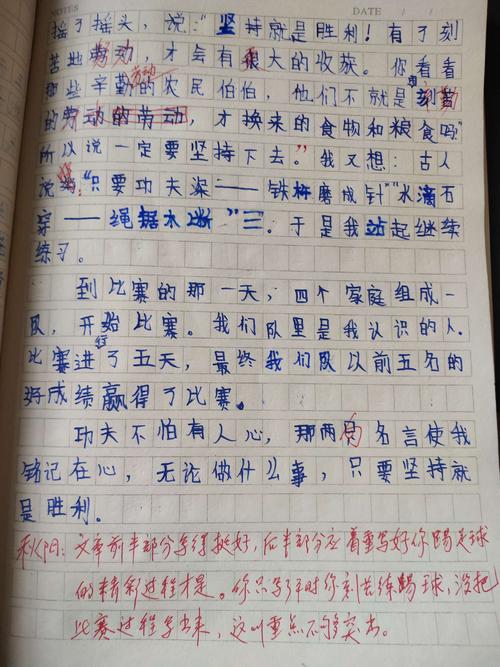 NOTES DATE / /
摇了摇头，说："坚持就是胜利！有了刻
苦地劳动，才会有很大的收获。你看看
那些辛勤的农民伯伯，他们不就是
的劳动的劳动，才换来的食物和粮食吗"
所以说一定要坚持下去。"我又想：古人
说"只要功夫深——铁杵磨成针""水滴石
穿——绳锯木断"三。于是我站起继续
练习。
到比赛的那一天，四个家庭组成一
队，开始比赛。我们队里是我认识的人.
比赛进行了五天，最终我们队以前五名的
好成绩赢得了比赛。
功夫不怕有人心，那两句名言使我
铭记在心，无论做什么事，只要坚持就
是胜利。
秋阳：文章前半部分写得挺好，后半部分应着重写好你踢足球
的精彩过程才是。你只写了平时你刻苦练踢球，没把
比赛过程写出来，这叫重点不够突出。